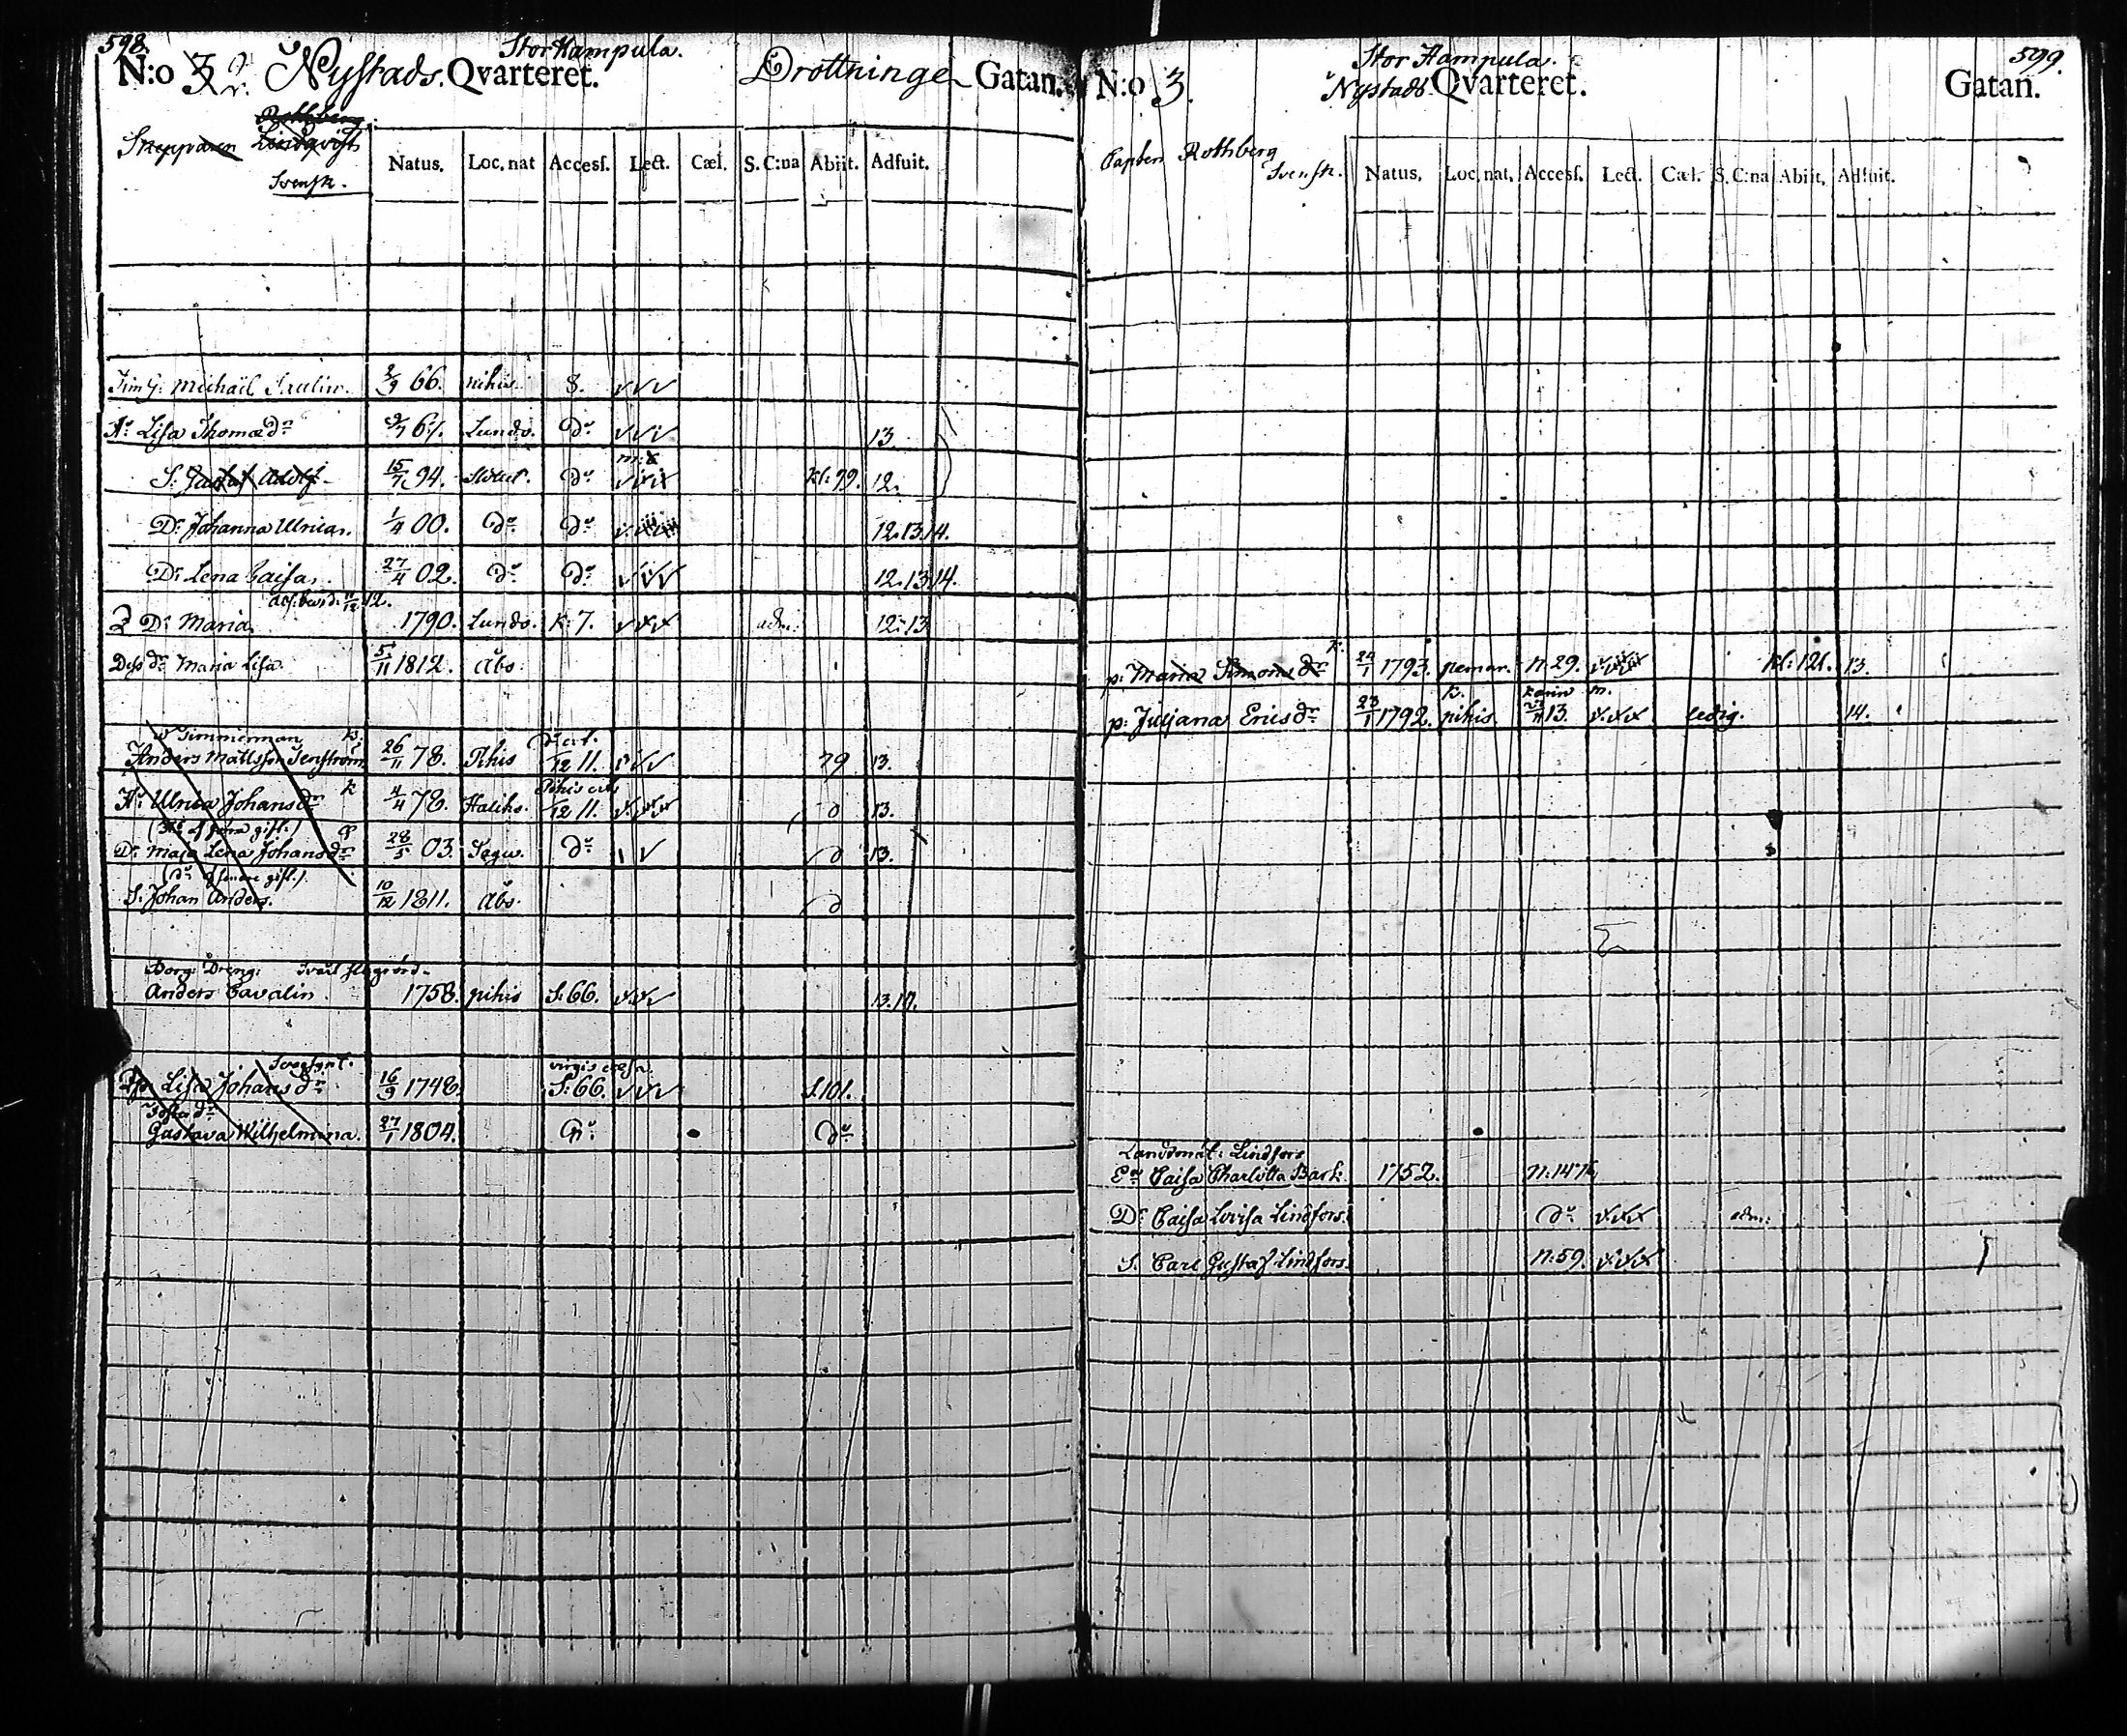 598.
Stor Kampula.
N:o 3 Nystads. Qvarteret. Drottninge Gatan.
Rothberg
Skepparen Lindqvist
Svensk.
Natus. Loc. nat Access. Lect. Cæl. S. C:na Abiit. Adfuit.
Michaël 2/9 66. pihis. 8.
H: Lisa Thomædr 67. Lundo. do 13
S: Gustaf Adolf 15/7 94. do Kl: 79. 12.
D: Johanna Ulrica. 1/4 00. do do 12.13.14.
D: Lena Caisa. 27/4 02. do do 12.13.14.
D: Maria. 1790. Lundo. K: 7. adm: 12.13
Dess dr Maria Lisa. 5/11 1812. Åbo.
Timmerman
Anders Mattsson 26/11 78. Pihis /12 11. 79 13.
H: Ulrica Johansdr 4/4 78. Halik. /12 11. d 13.
D: Maja Lena Johansdr 28/5 03. Sagu. do d 13.
S: Johan Anders. 10/12 1811. Åbo. d
Borg: Dreng:
Anders Cavalin. 1758. pihis S: 66.
virgis cæsa
Lisa Johansdr 16/9 1748. S: 66. S.101.
Gustava Wilhelmina. 27/1 1804. do do
599.
Stor Kampula.
N:o 3. Nystads Qvarteret. Gatan.
Capten Rothberg
Svensk.
Natus. Loc. nat. Access. Lect. Cæl. S. C:na Abiit. Adfuit.
p: Maria Simonsdr 1793. pemar. n: 29. Kl: 121. 13.
p: Juljana Ericsdr 23/1 1792. pihis. 13. ledig. 14.
Landtmät: Lindfors
Caisa Charlotta Bark. 1752.
D: Caisa Lovisa Lindfors. do adm:
S. Carl Gustaf Lindfors. n: 59.